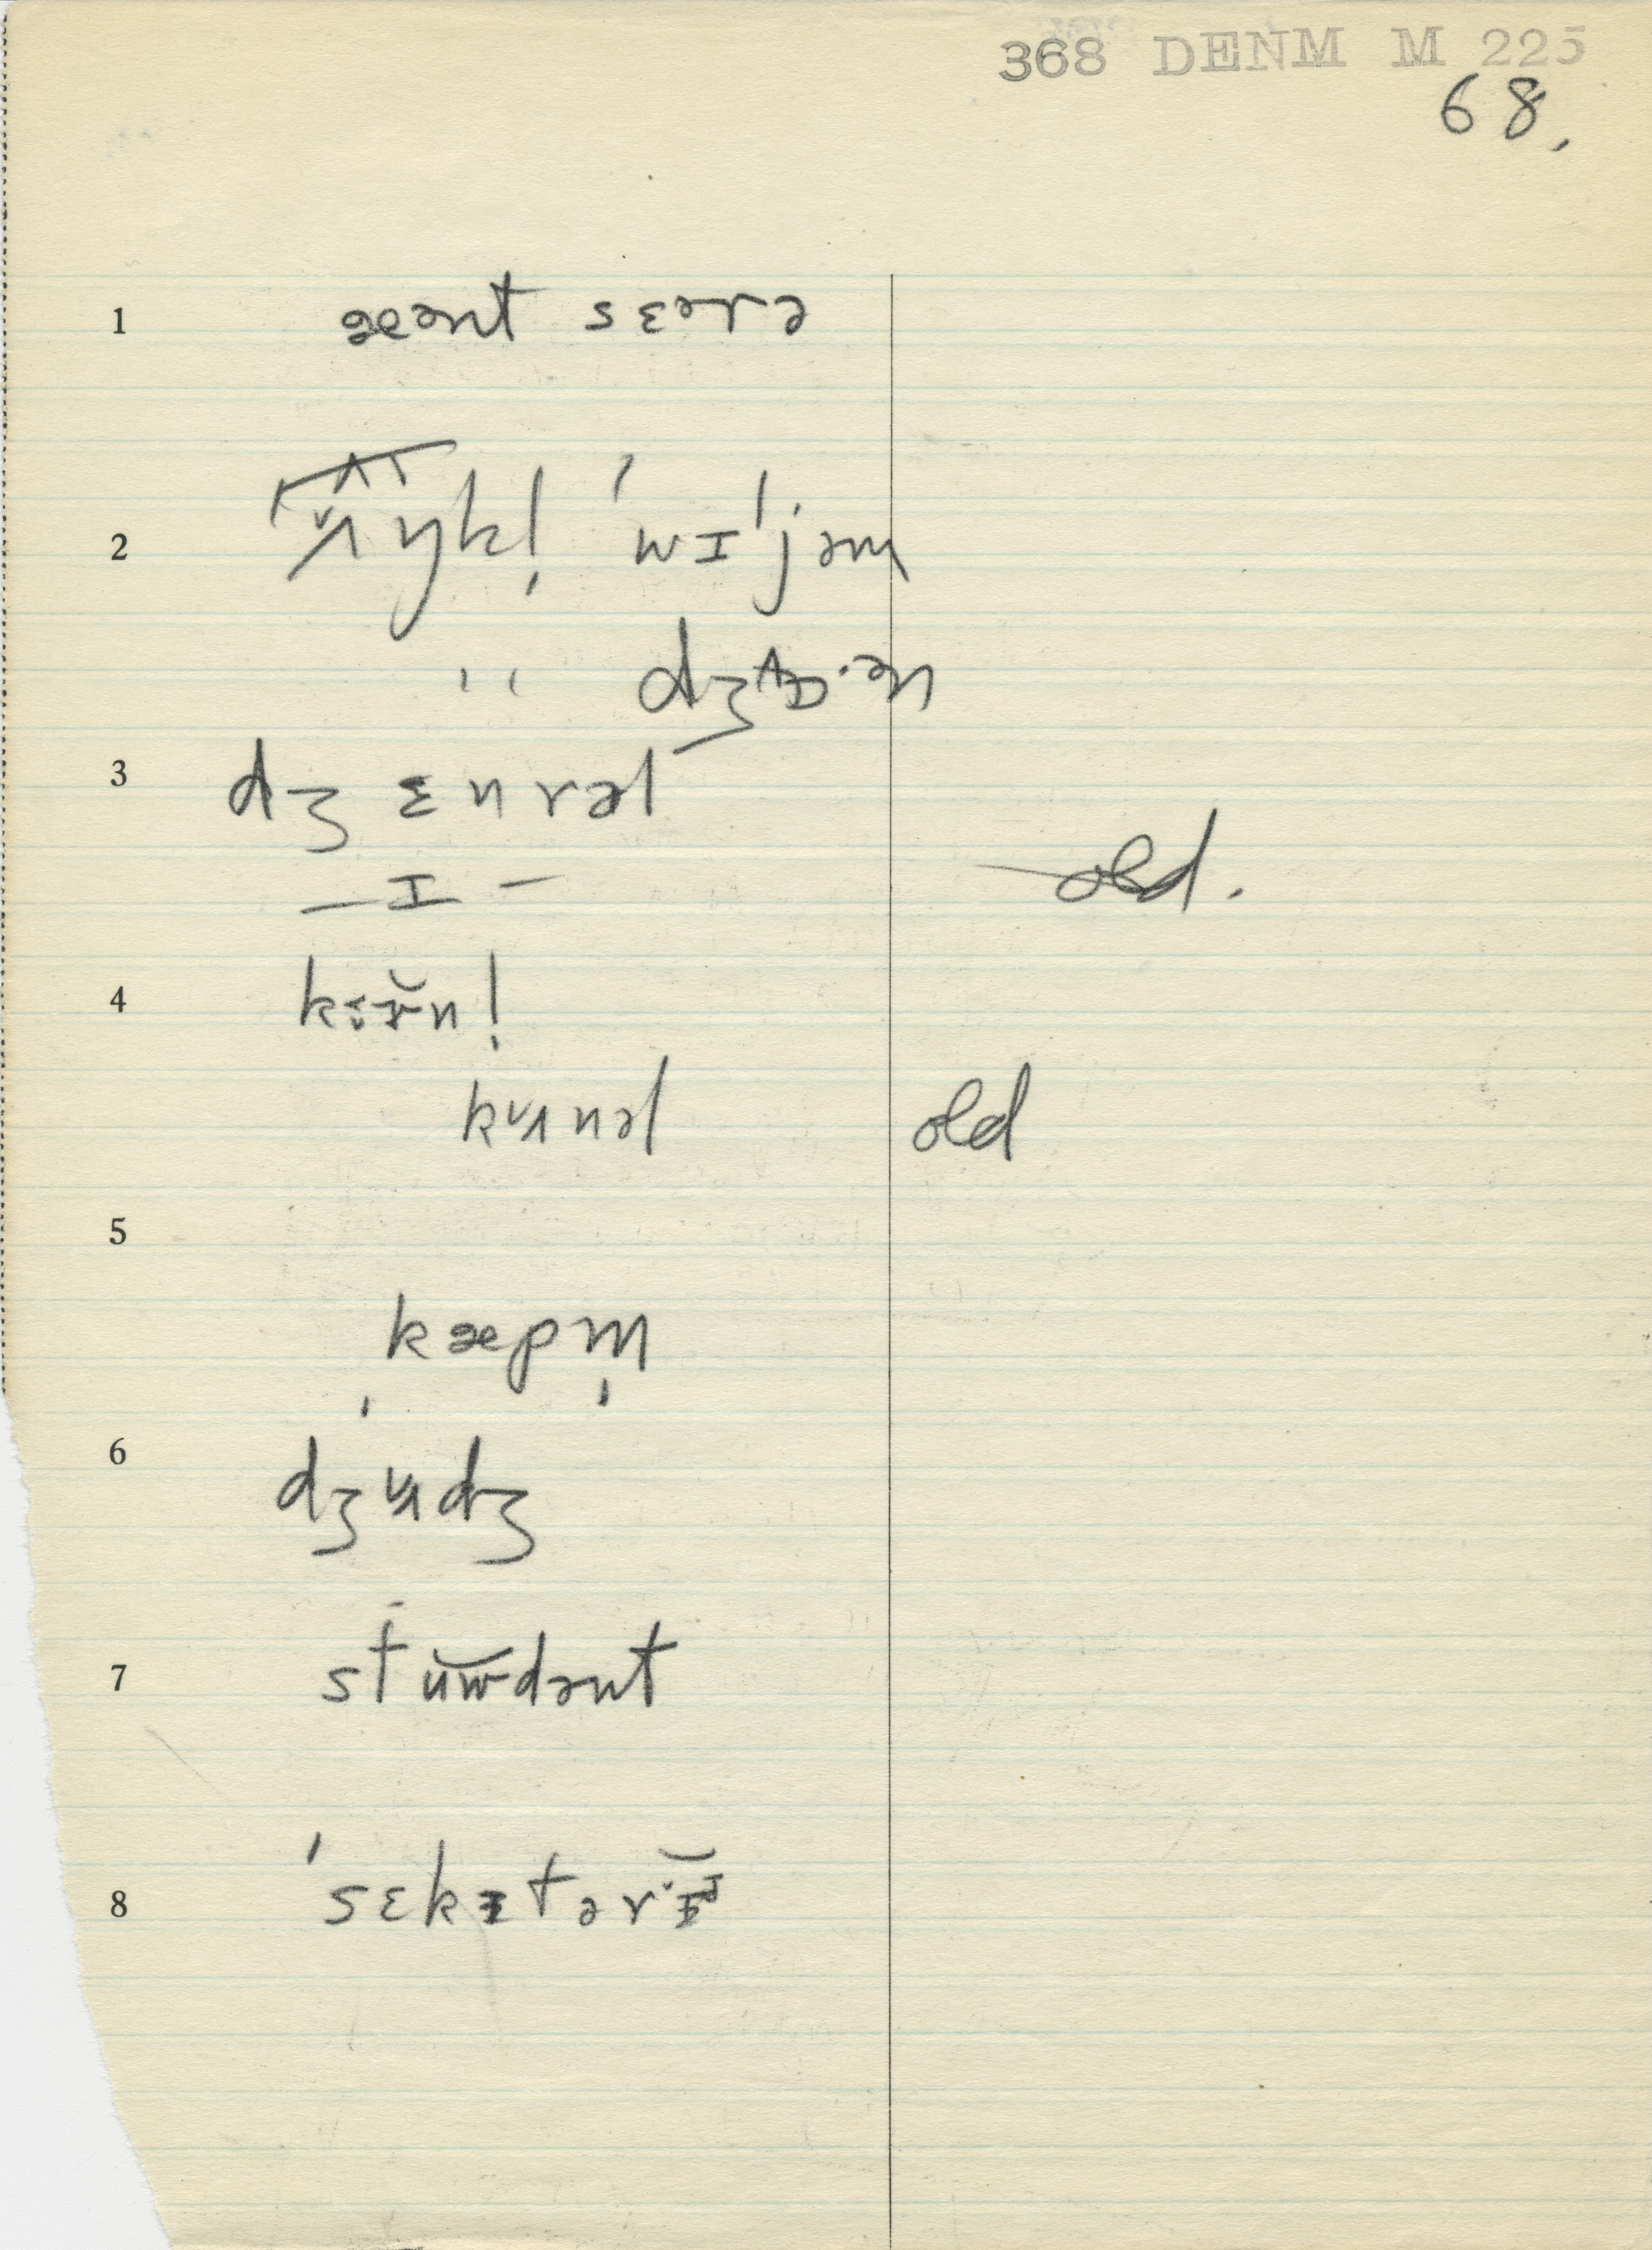 368 DENM M 225
68.
1 æənt sɛərə
2 ʌŋkl̩ ˈwɪˈjəm
" dʒɒ·ən
3 dʒɛnrəl
— ɪ — old.
4 kɜ̆n!
kʌnəl old
5
kæpm̩
6 dʒʌdʒ
7 stŭw̆dənt
8 ˈsɛkɪtərɪ